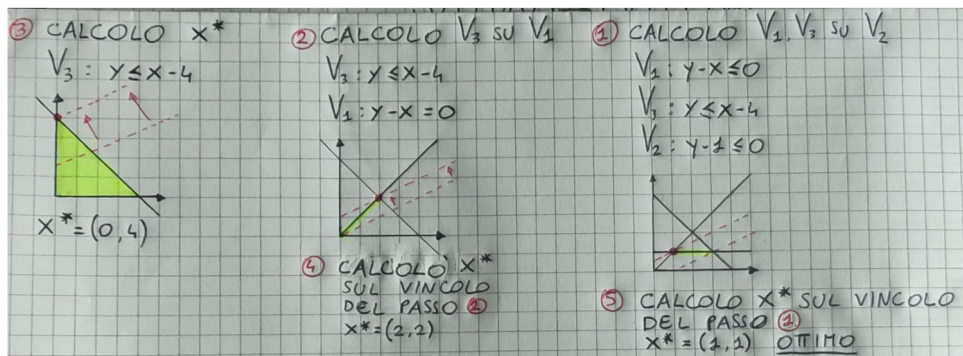 ③ CALCOLO X*
V3 : Y ≤ X - 4
X* = (0,4)
② CALCOLO V3 SU V1
V3 : Y ≤ X - 4
V1 : Y - X = 0
④ CALCOLO X*
SUL VINCOLO
DEL PASSO ②
X* = (2,2)
① CALCOLO V1, V3 SU V2
V1 : Y - X ≤ 0
V3 : Y ≤ X - 4
V2 : Y - 1 ≤ 0
⑤ CALCOLO X* SUL VINCOLO
DEL PASSO ①
X* = (1,1) OTTIMO